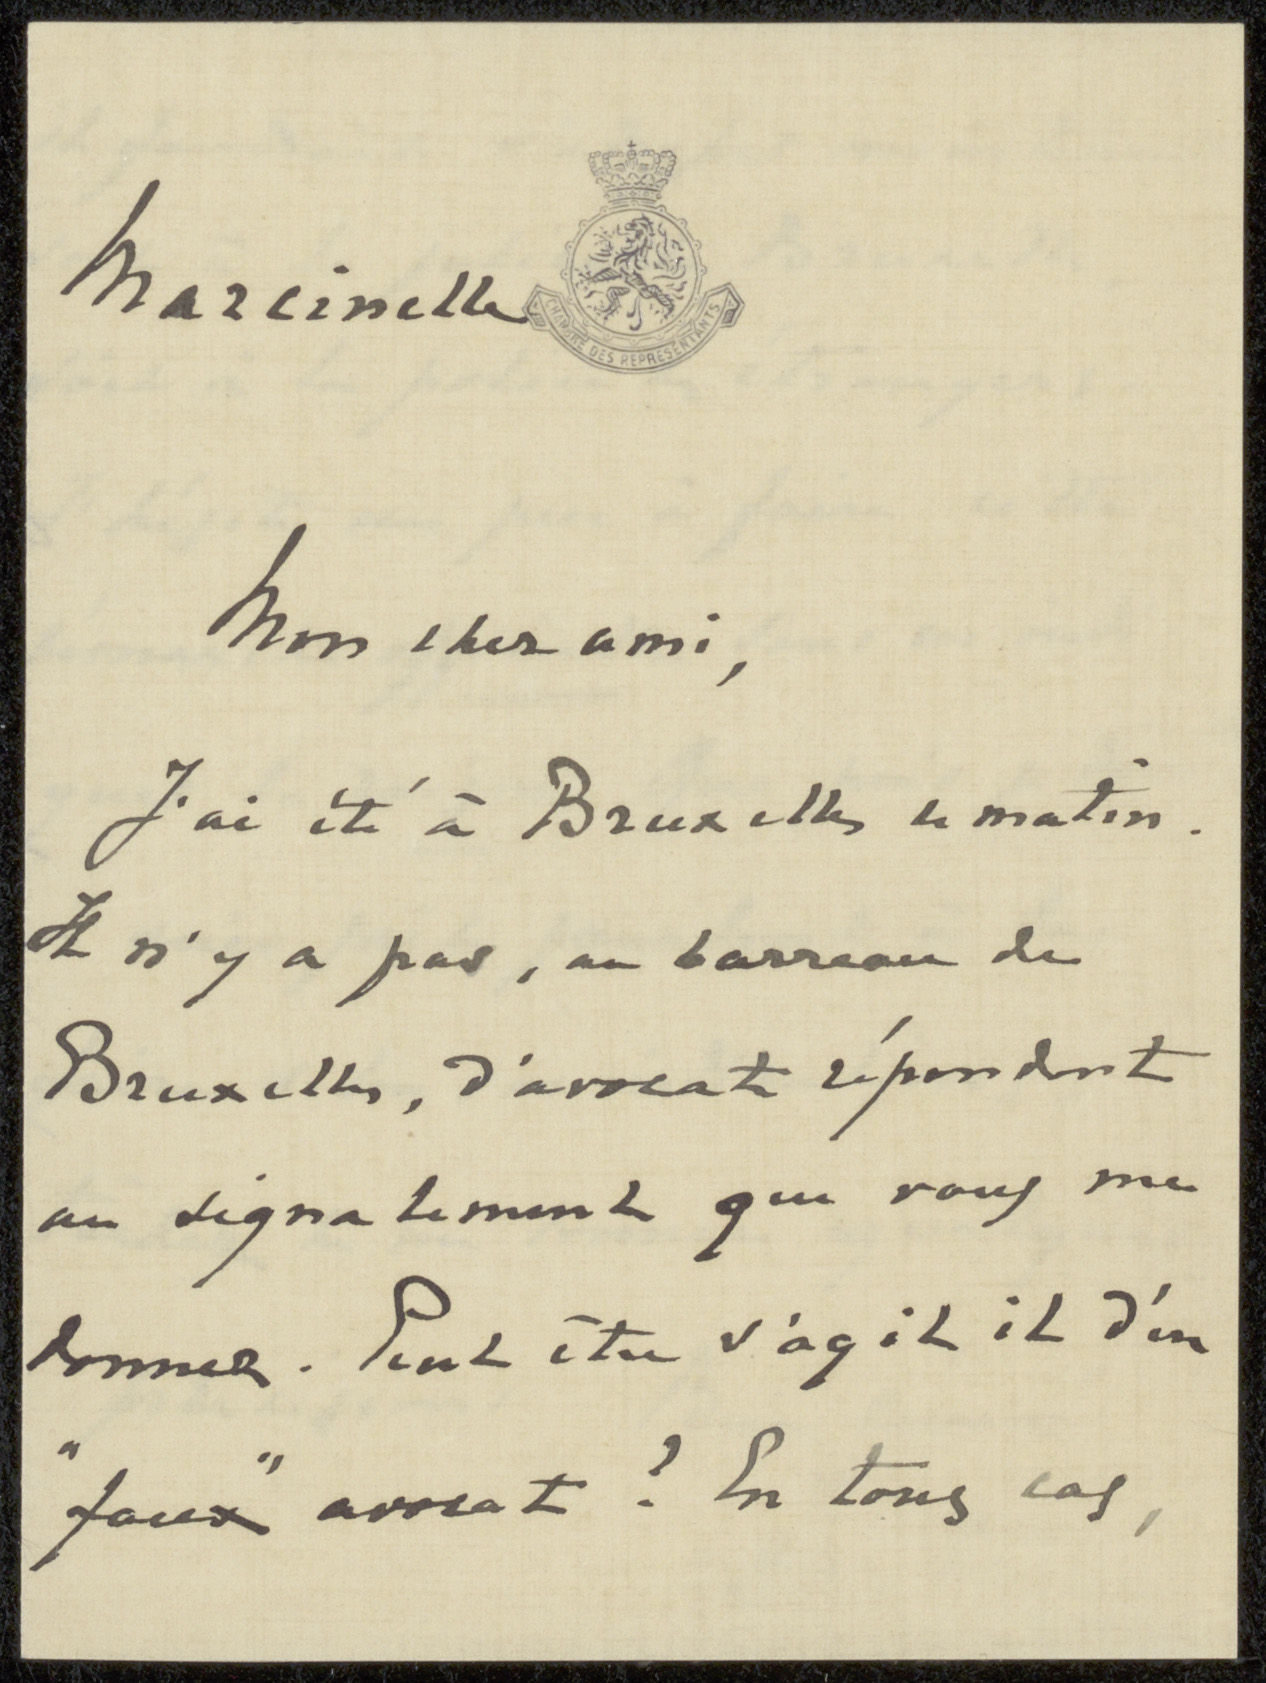 Marcinelle
CHAMBRE DES REPRÉSENTANTS
Mon cher ami,
J'ai été à Bruxelles ce matin.
Il n'y a pas, au barreau de
Bruxelles, d'avocate répondant
au signalement que vous me
donnez. Peut être s'agit il d'un
"faux" avocat ? En tous cas,